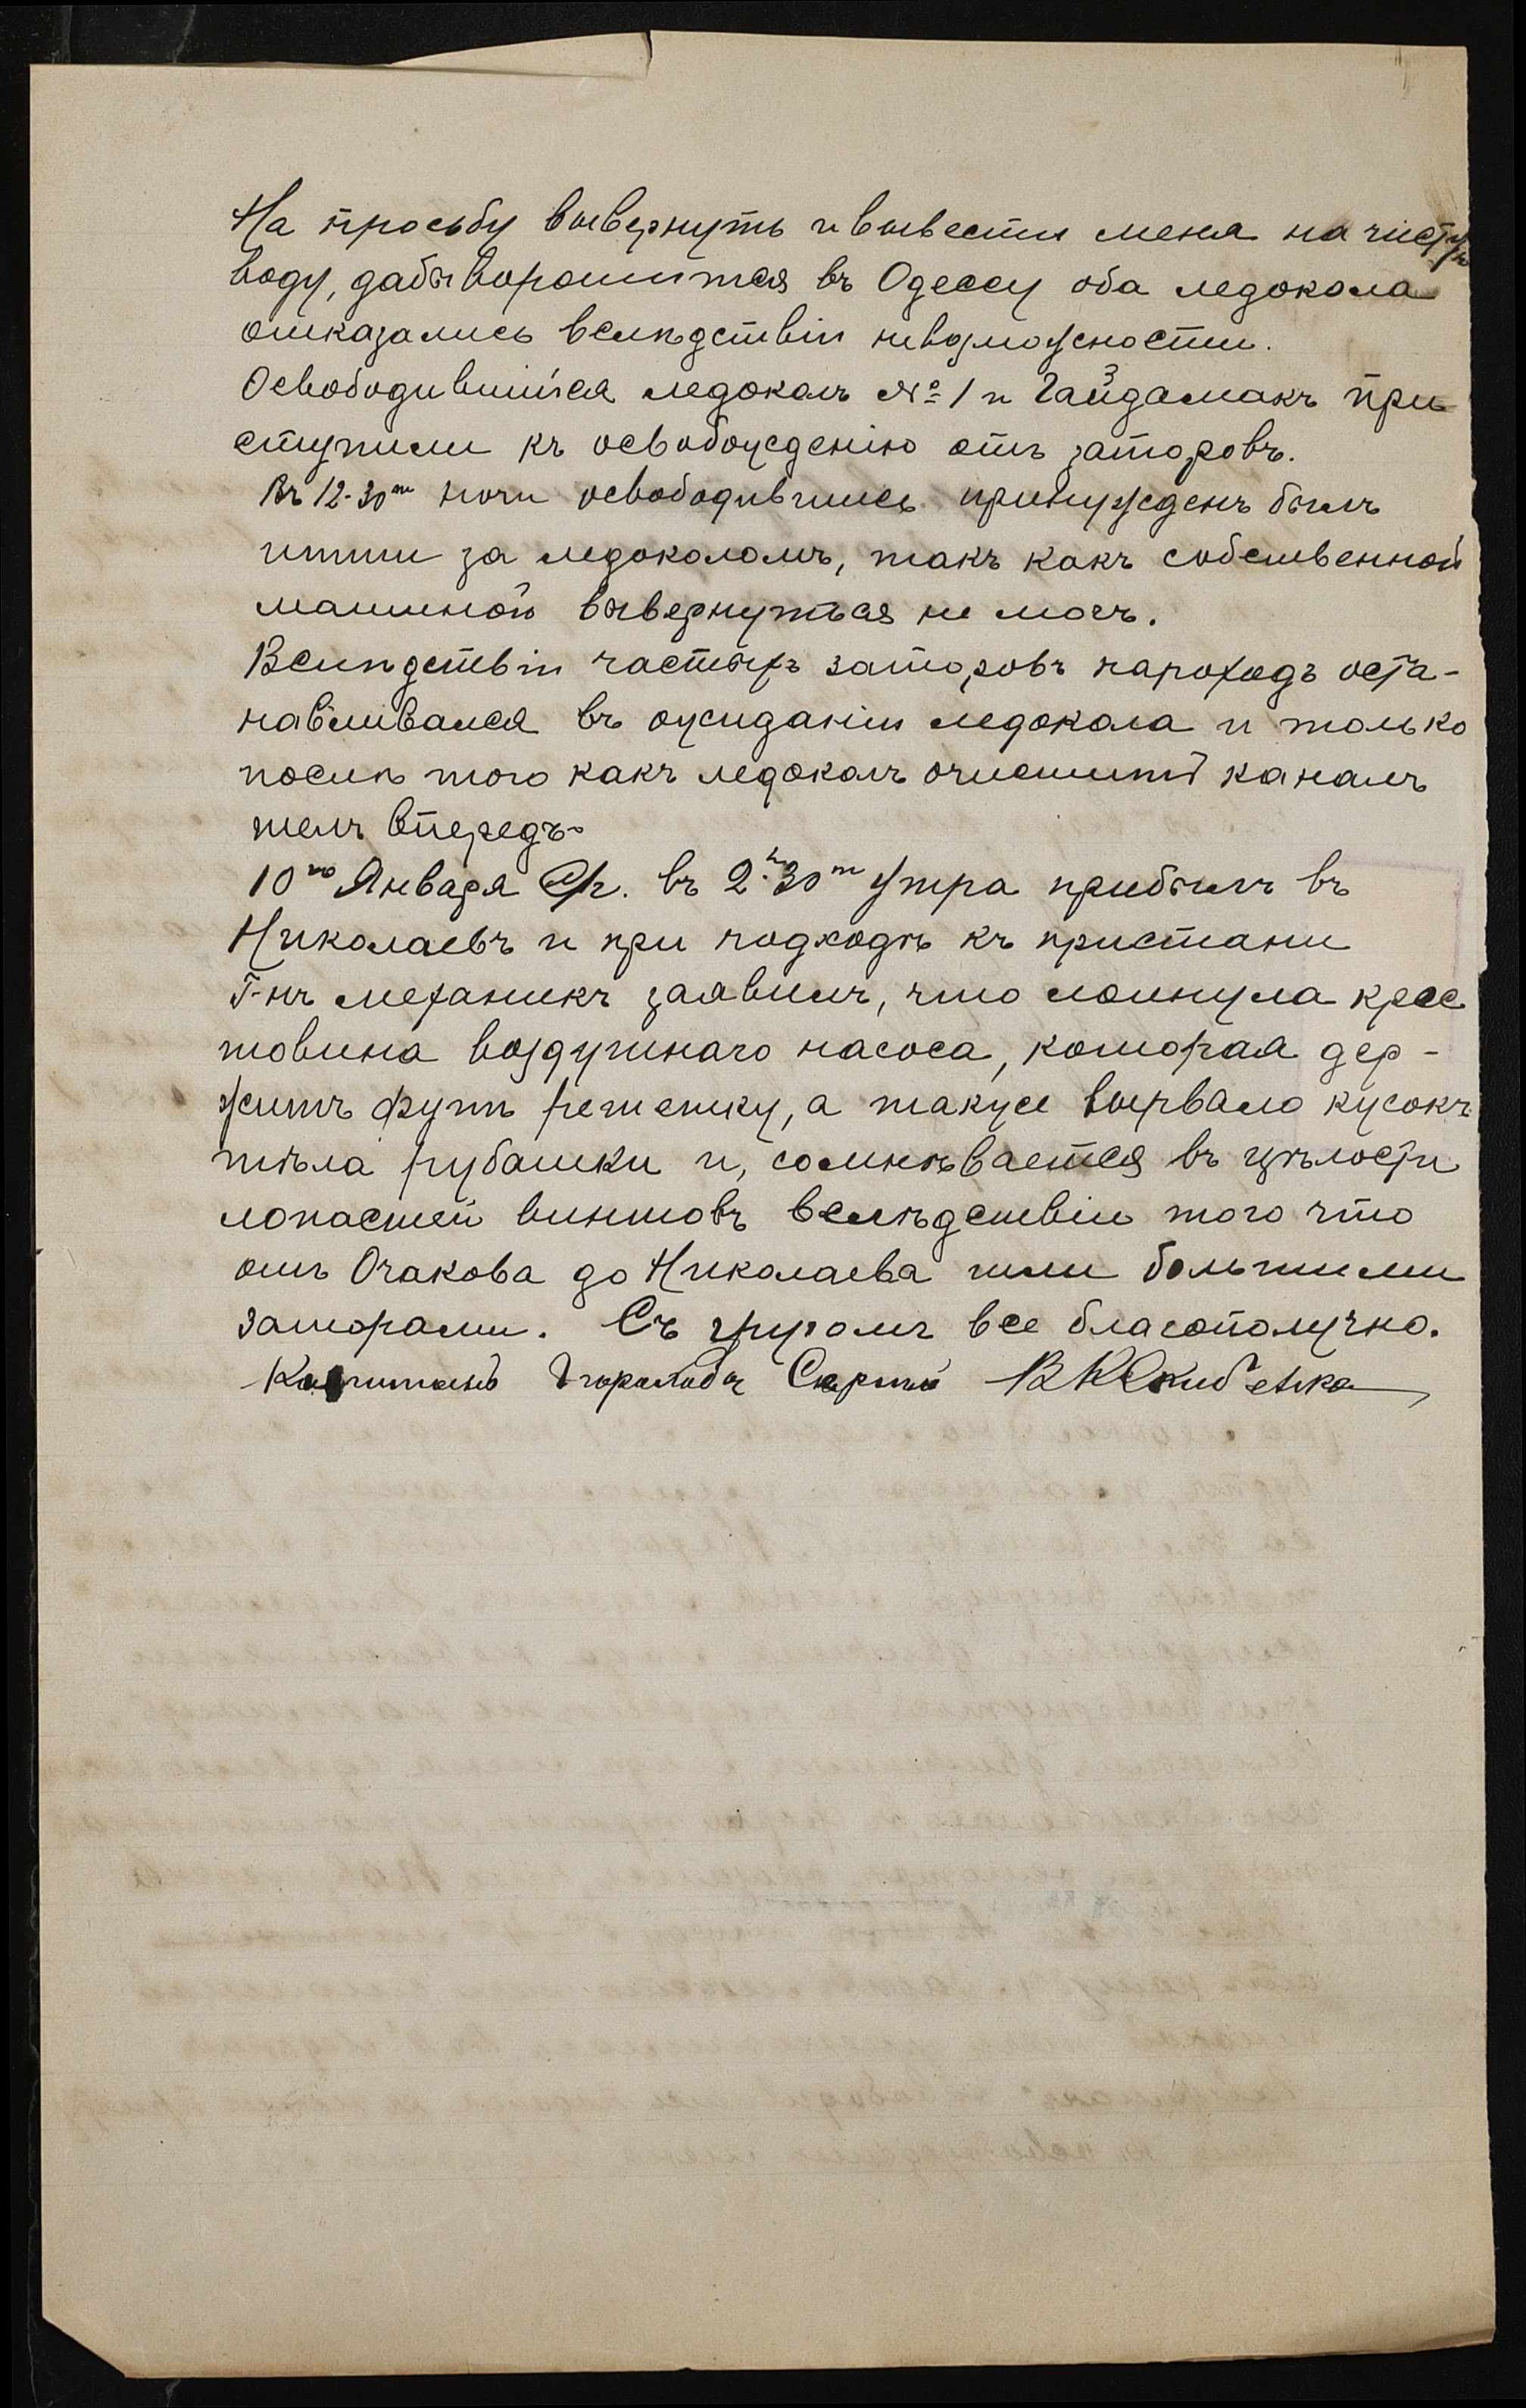 На просьбу вывернуть и вывести меня на чистую
воду, дабы воротится въ Одессу оба ледокола
отказались вслѣдствіи невозможности.
Освободившійся ледоколъ № 1 и Гайдамакъ при
ступили къ освобожденію отъ заторовъ.
Въ 12-30 m ночи освободившись принужденъ былъ
итти за ледоколомъ, такъ какъ собственной
машиной вывернуться не могъ.
Вслѣдствіи частыхъ заторовъ пароходъ оста-
навливался въ ожиданіи ледокола и только
послѣ того какъ ледоколъ очиститъ каналъ
шелъ впередъ.
10го Января с/г. въ 2 ч 30 m утра прибылъ въ
Николаевъ и при подходѣ къ пристани
Г-нъ механикъ заявилъ, что лопнула крес
товина воздушнаго насоса, которая дер-
житъ футъ решетку, а также вырвало кусокъ
тѣла рубашки и, сомнѣвается въ цѣлости
лопастей винтовъ вслѣдствіи того что
отъ Очакова до Николаева шли большими
заторами. Съ грузомъ все благополучно.
Капитанъ Парохода В К Скибенка